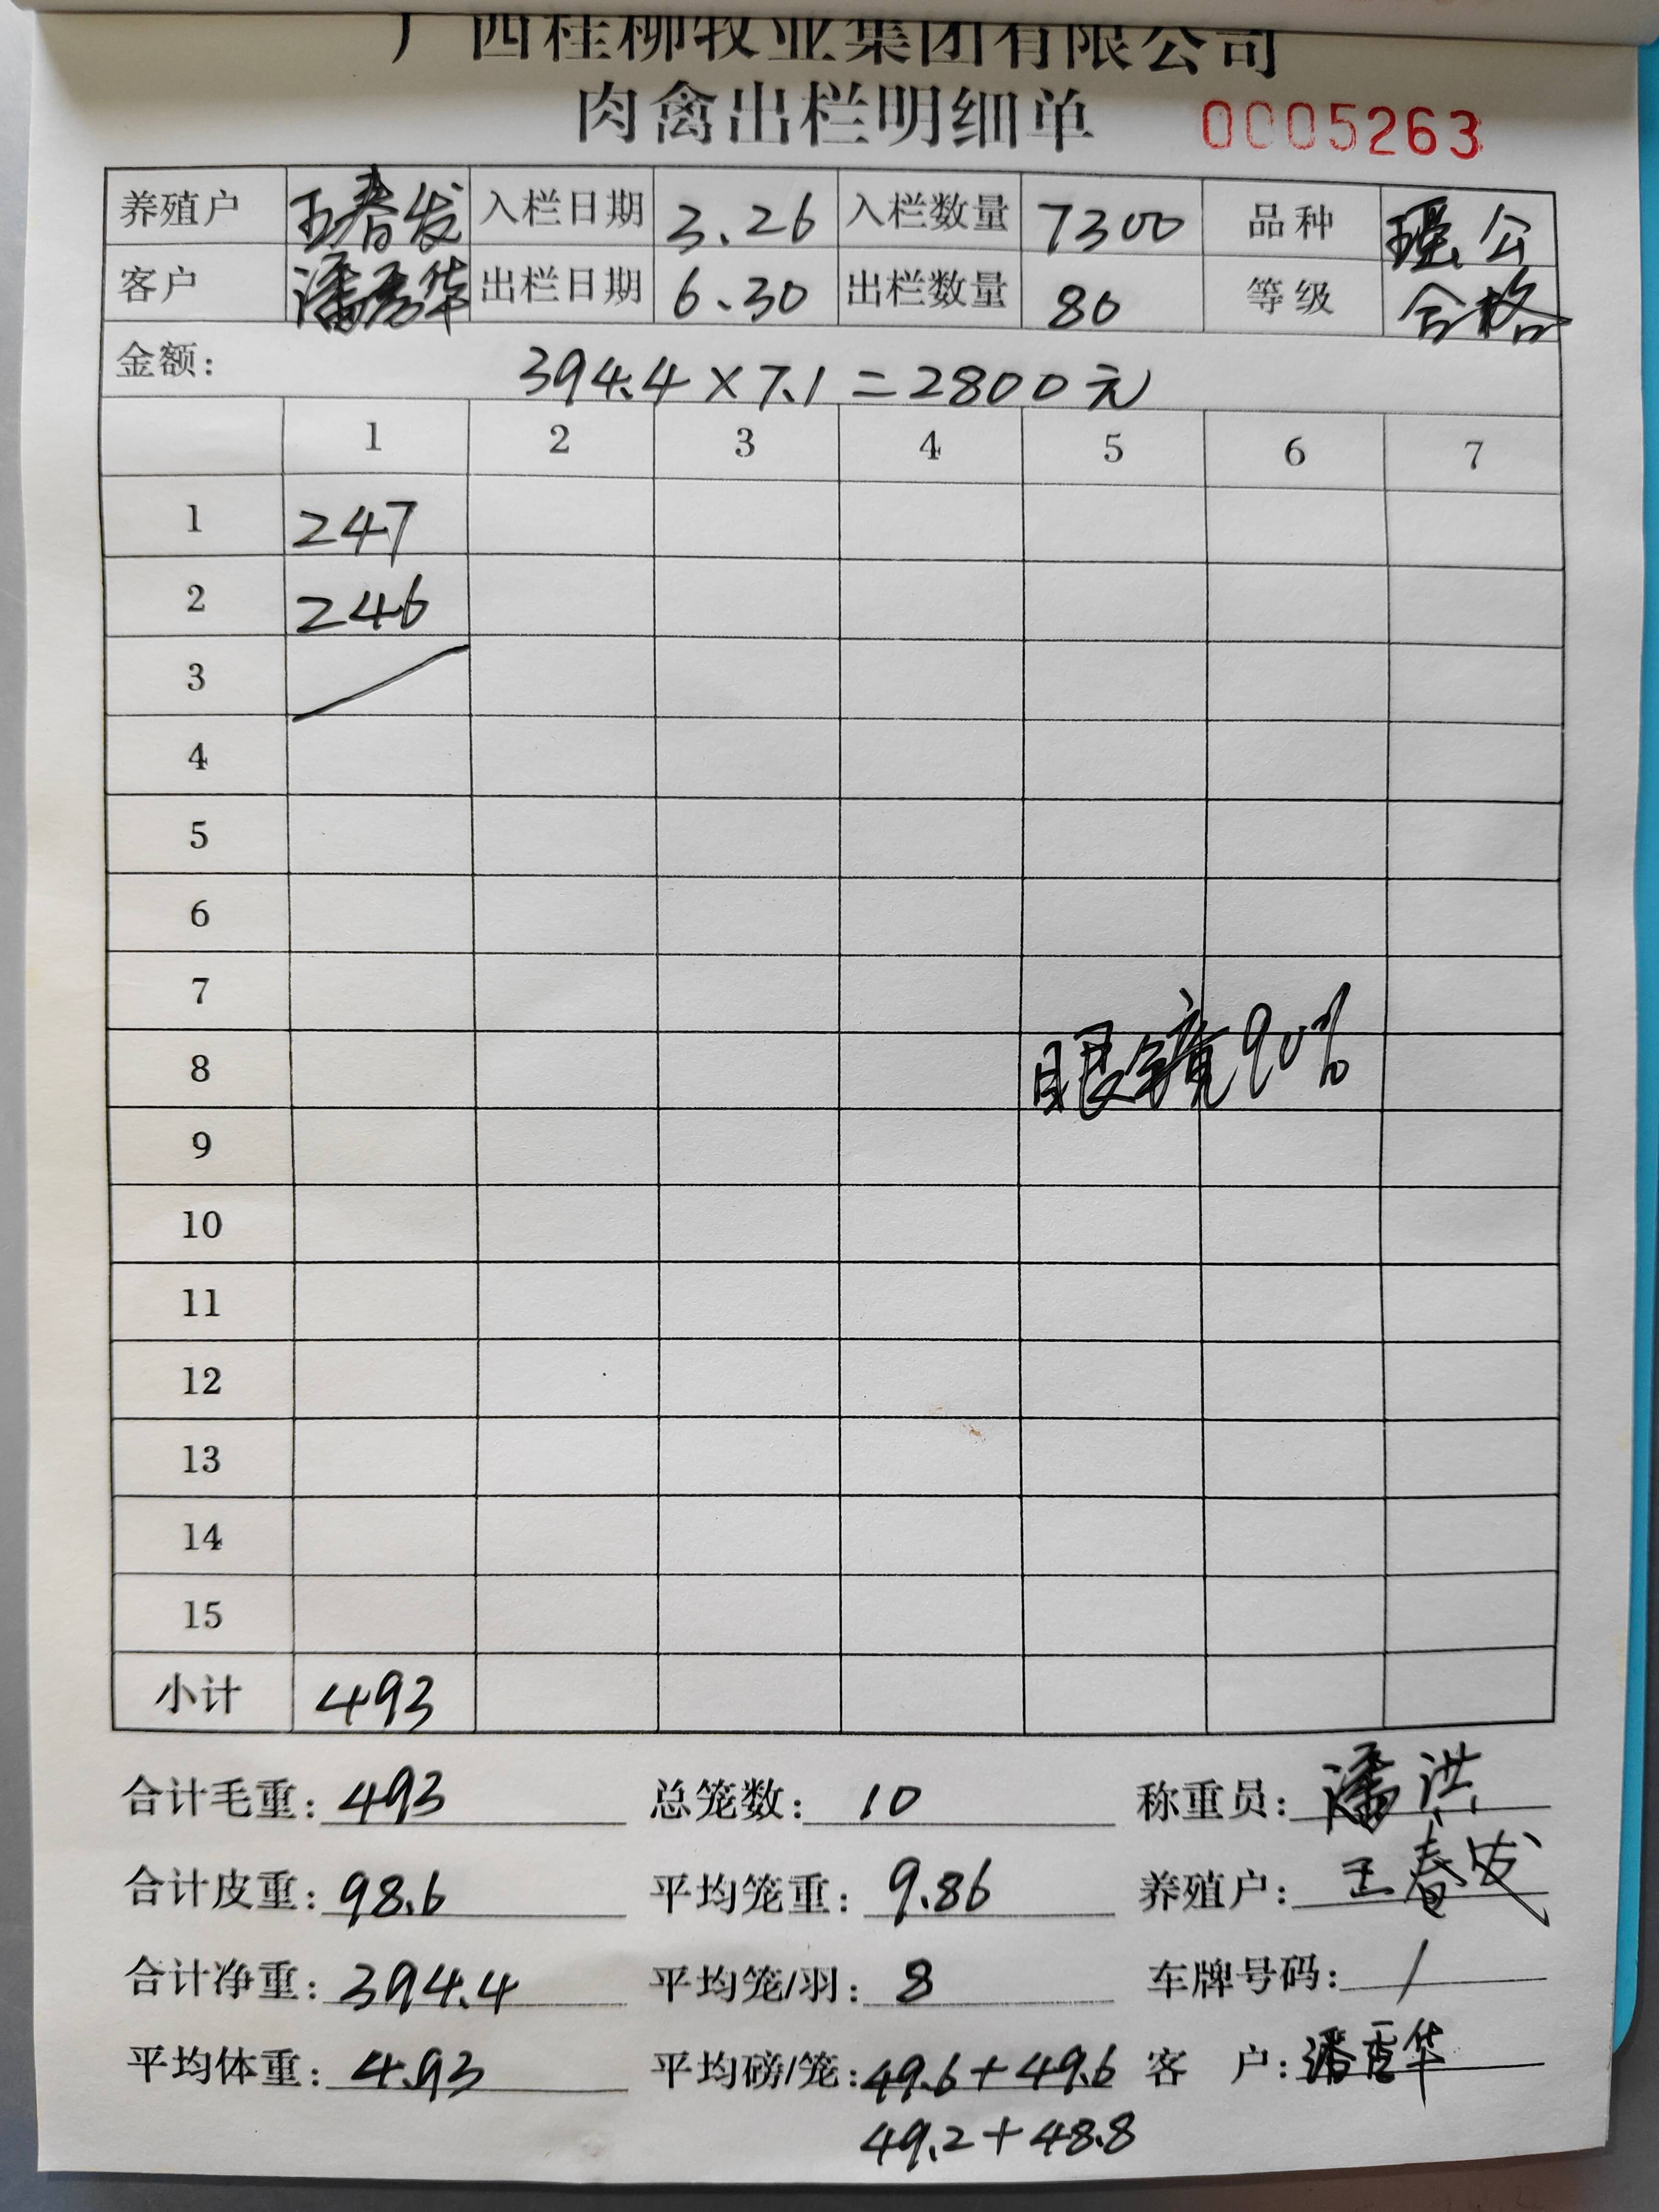 广西桂柳牧业集团有限公司
肉禽出栏明细单 0005263
养殖户 王春发 入栏日期 3.26 入栏数量 7300 品种 瑶公
客户 潘秀华 出栏日期 6.30 出栏数量 80 等级 合格
金额： 394.4×7.1=2800元
1 2 3 4 5 6 7
1 247
2 246
3
4
5
6
7
8 眼镜90%
9
10
11
12
13
14
15
小计 493
合计毛重：493 总笼数：10 称重员：潘洪
合计皮重：98.6 平均笼重：9.86 养殖户：王春发
合计净重：394.4 平均笼/羽：8 车牌号码：/
平均体重：4.93 平均磅/笼：49.6+49.6 客 户：潘秀华
49.2+48.8